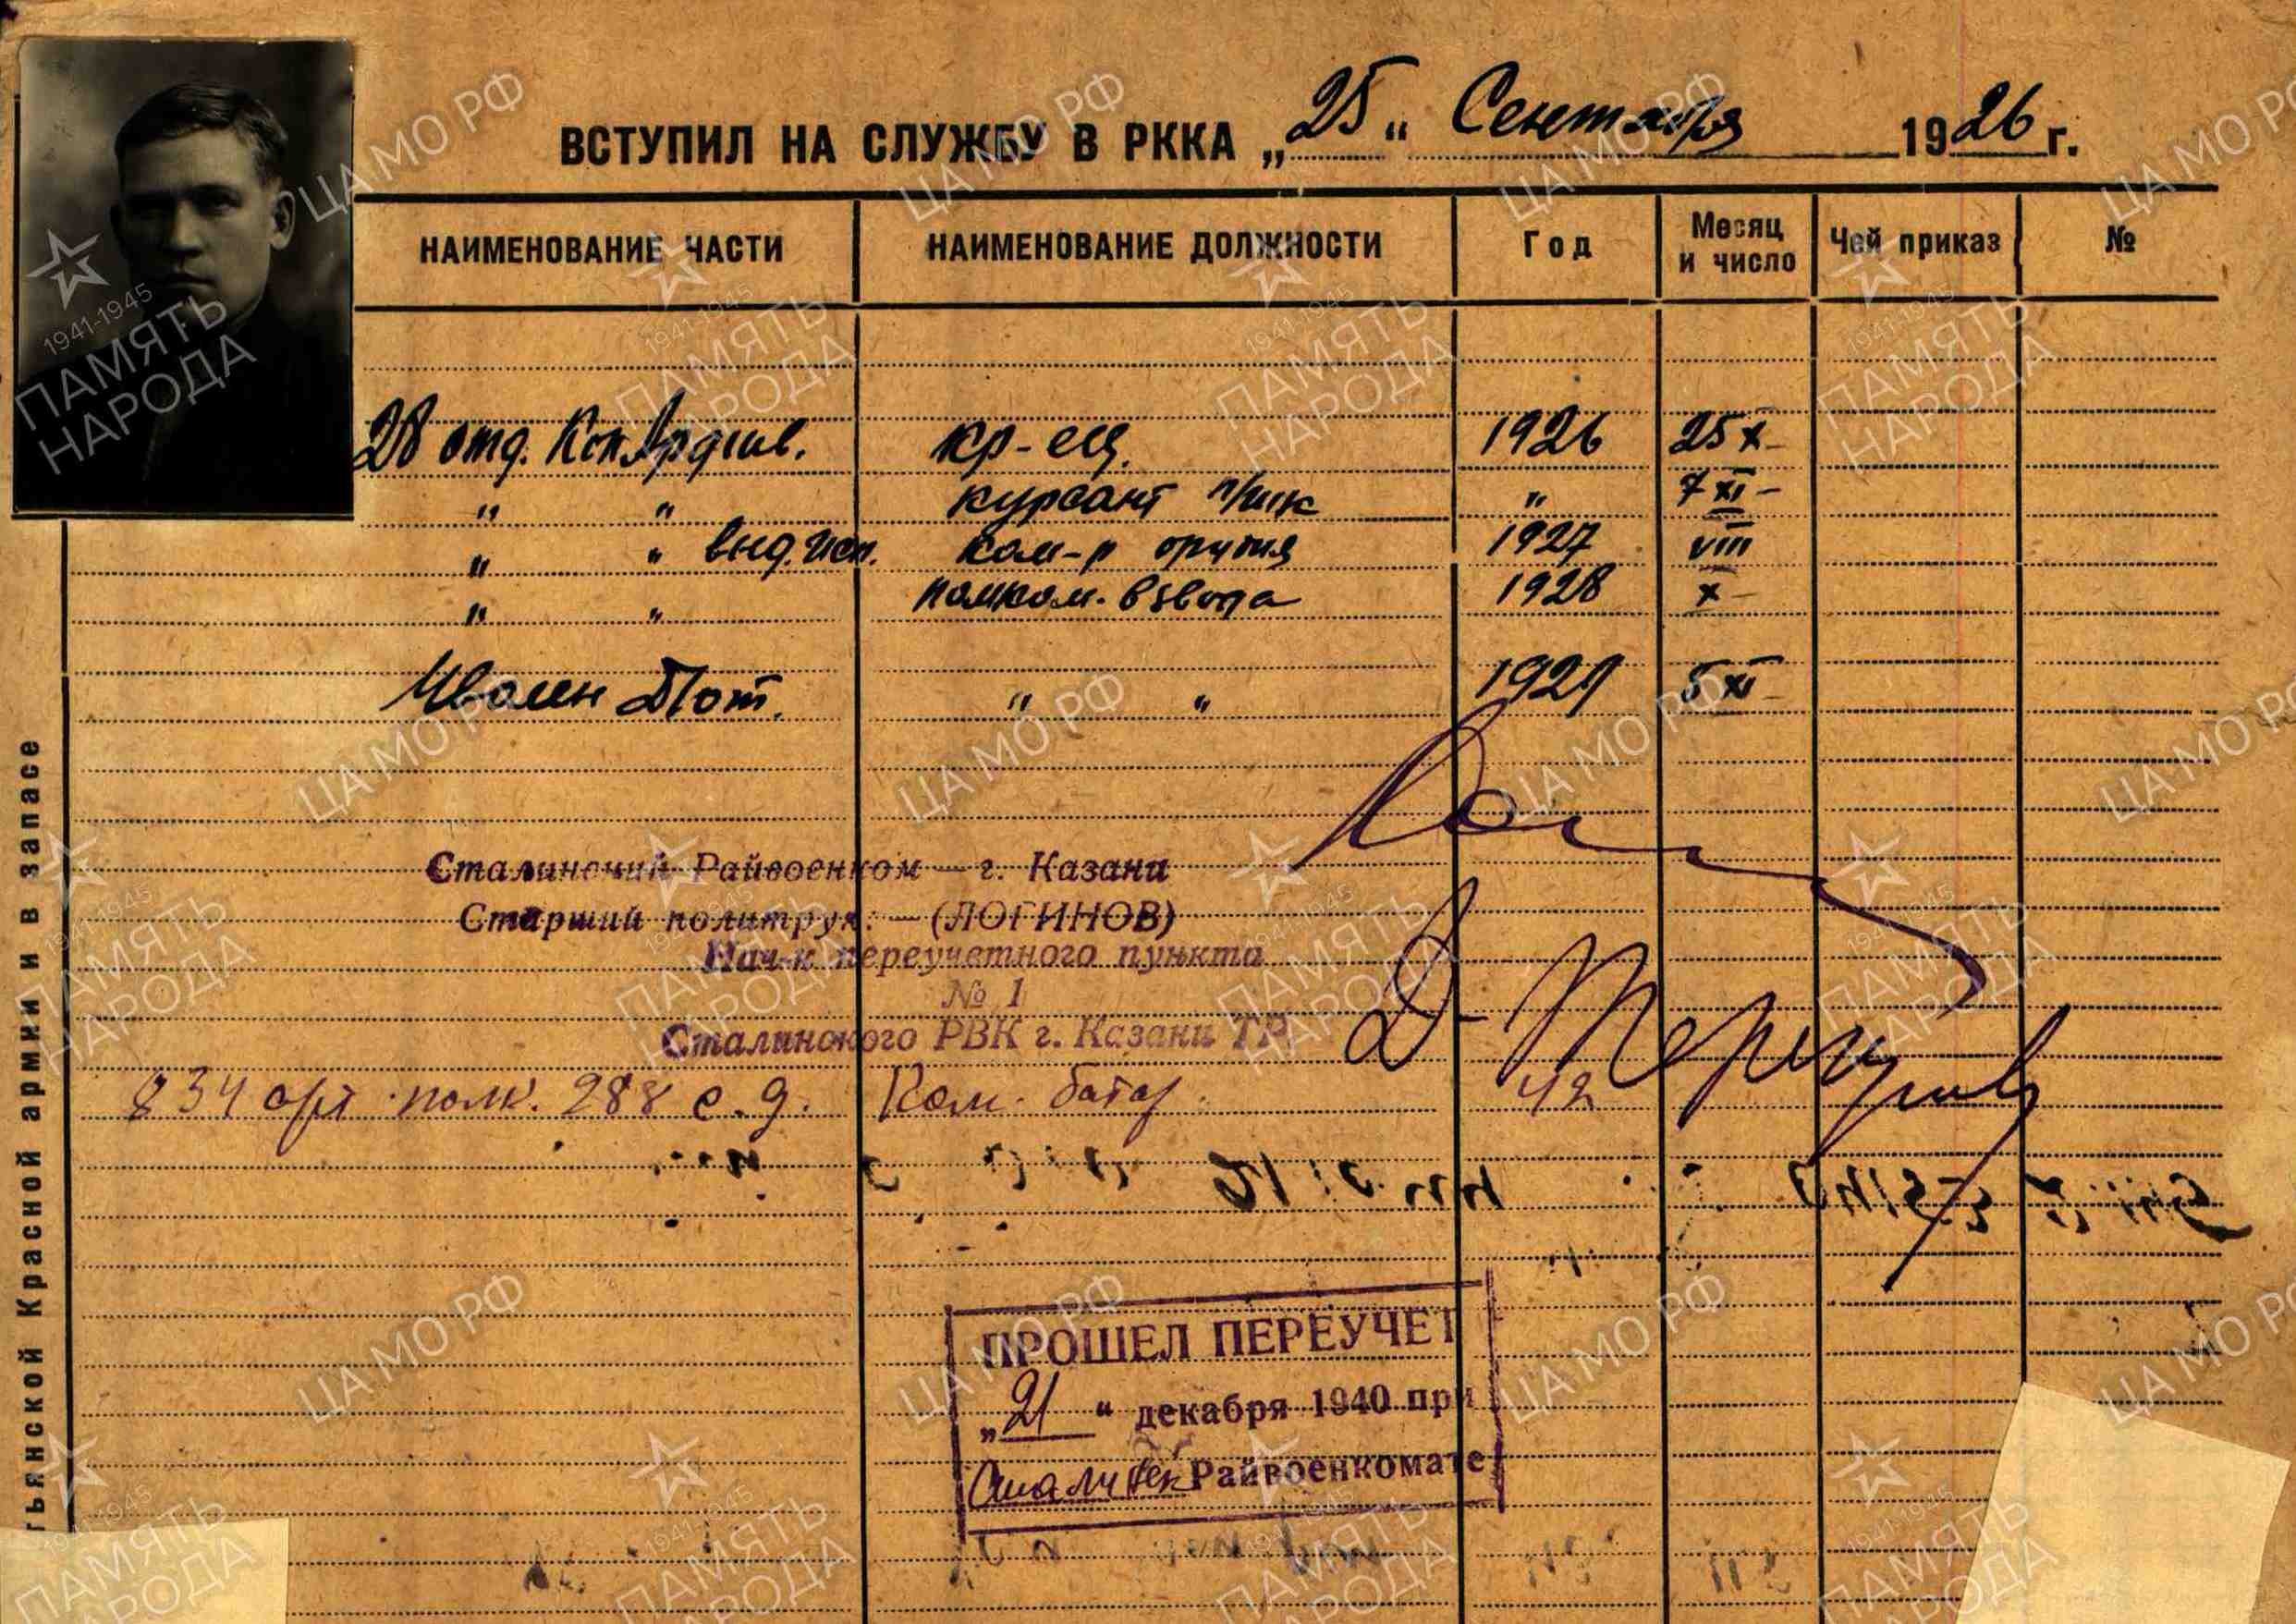 ВСТУПИЛ НА СЛУЖБУ В РККА „25" Сентября 1926 г.
НАИМЕНОВАНИЕ ЧАСТИ НАИМЕНОВАНИЕ ДОЛЖНОСТИ Год Месяц и число Чей приказ №
28 отд. Кон. Ардив. кр-ец. 1926 25 X
" " курсант п/шк " 7 XI
" " ком-р орудия 1927 VIII
" " помком. взвода 1928 X
" " 5 XI
Сталинский Райвоенком — г. Казани
Старший политрук: — (ЛОГИНОВ)
Нач-к переучетного пункта
№ 1
Сталинского РВК г. Казани ТР
834 арт. полк. 288 с. д. Ком. батар. 42
ПРОШЕЛ ПЕРЕУЧЕТ
„21" декабря 1940 при
Сталинск Райвоенкомате
тьянской Красной армии и в запасе
ЦА МО РФ
1941-1945
ПАМЯТЬ
НАРОДА